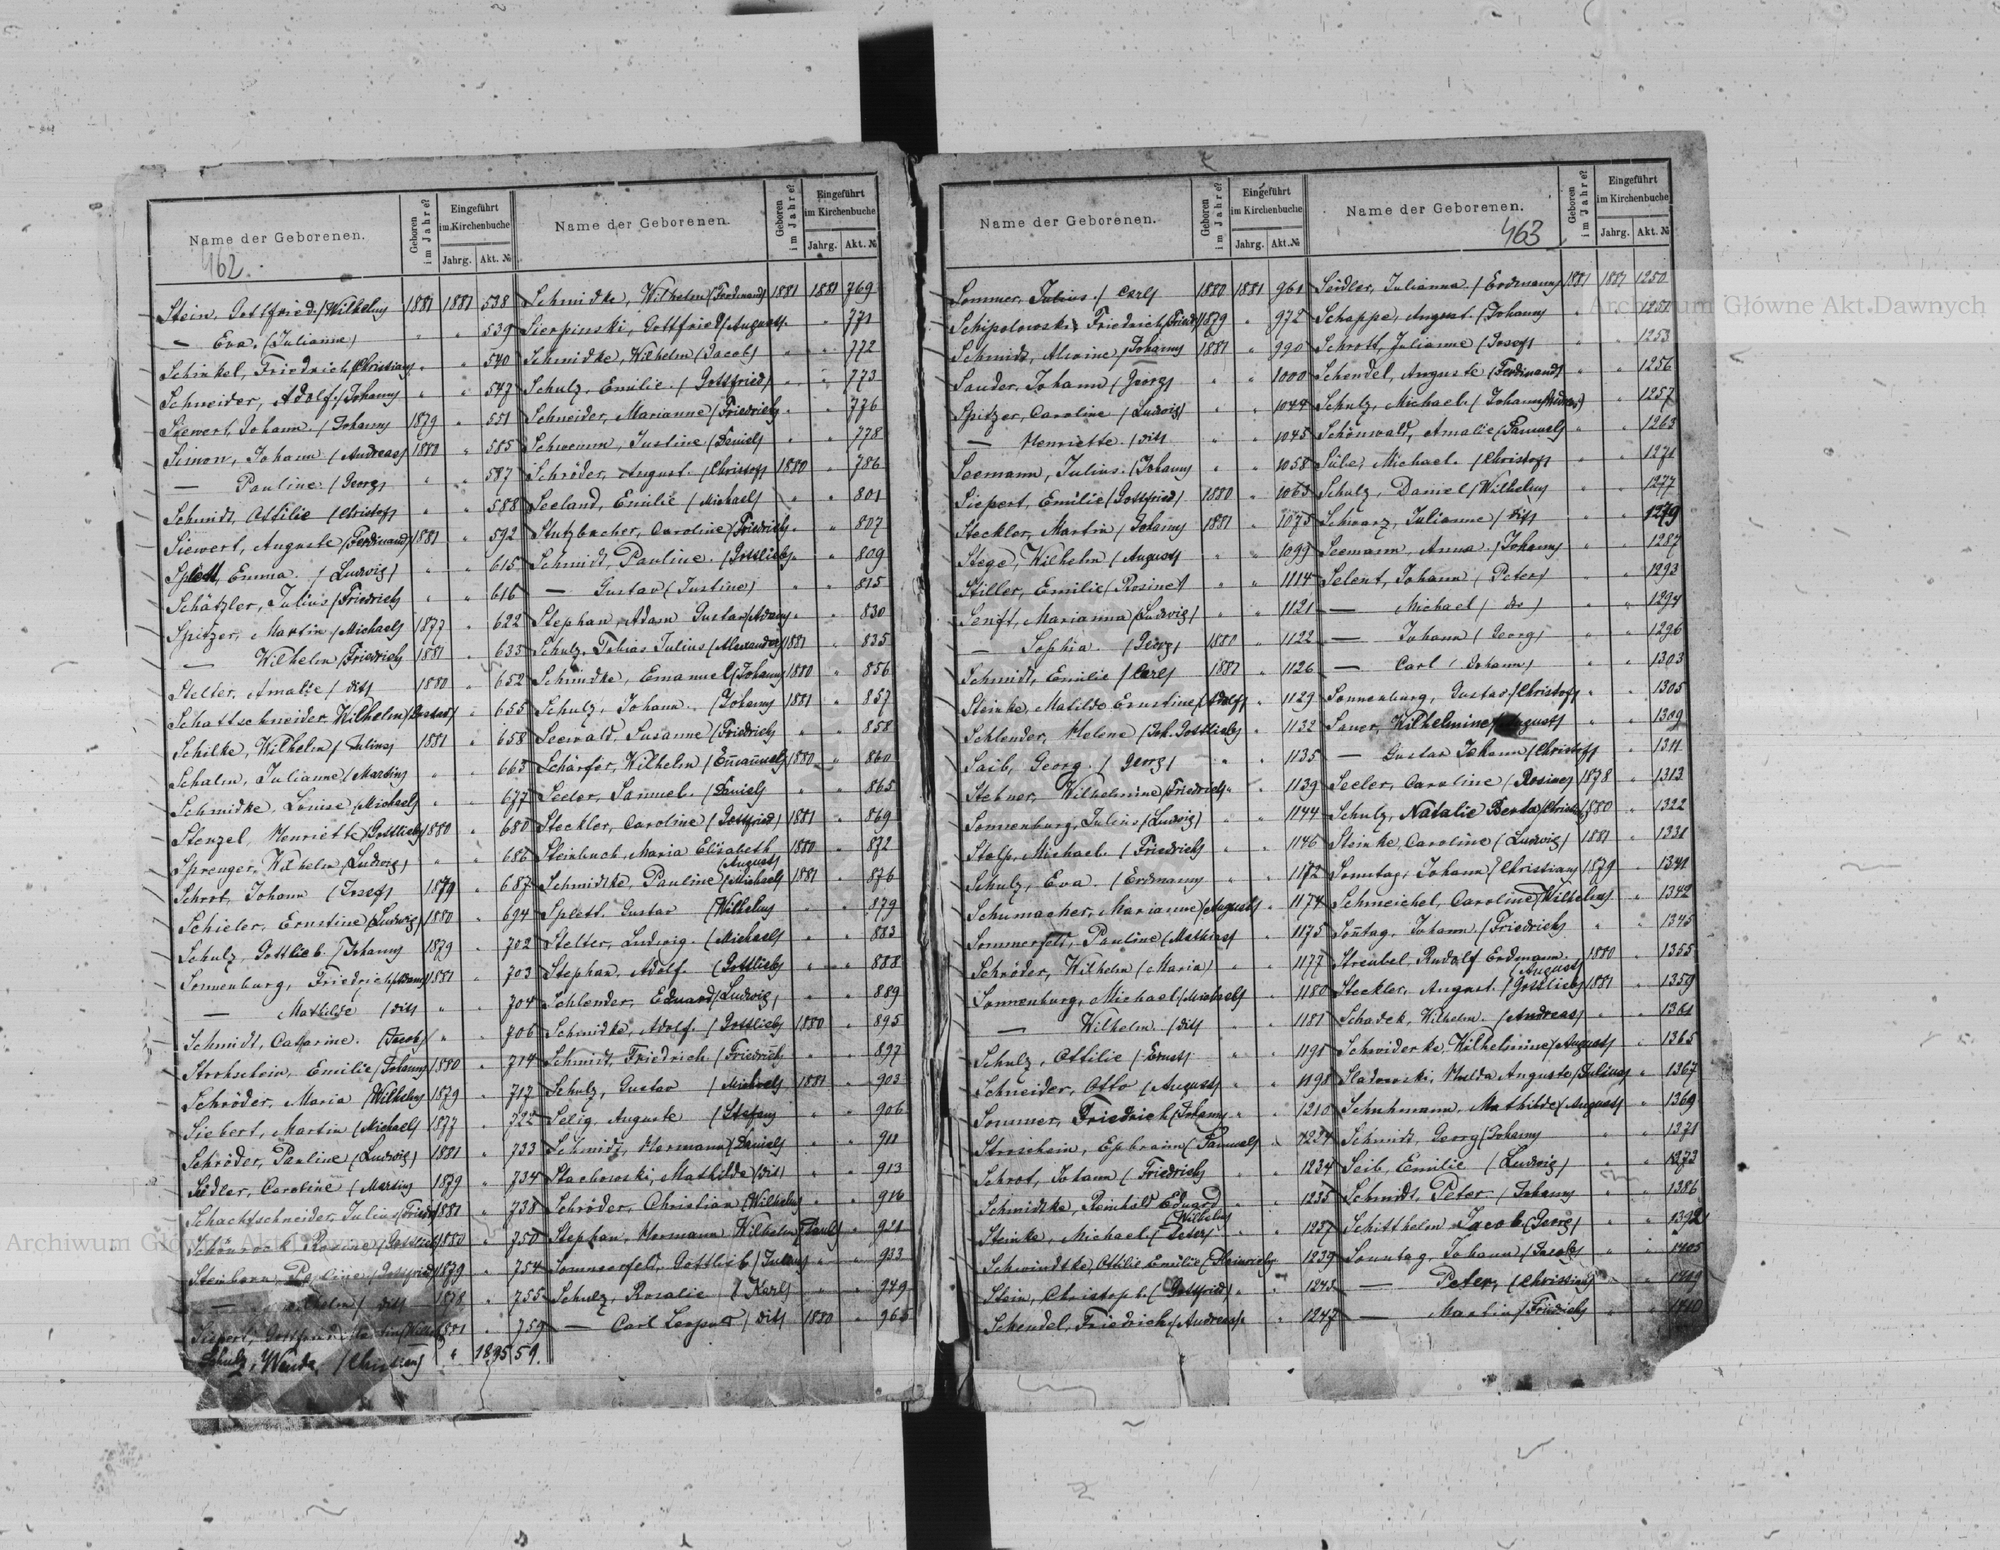 Name der Geborenen.
Geboren im Jahre?
Eingeführt im Kirchenbuche
Jahrg.
Akt. №
462.
Stein, Gottfried (Wilhelm) 1881 1881 538
— Eva (Julianne) " " 539
Schinkel, Friedrich (Christian) " " 540
Schneider, Adolf (Johann) " " 547
Siewert, Johann (Johann) 1879 " 551
Simon, Johann (Andreas) 1880 " 585
— Pauline (Georg) " " 587
Schmidt, Ottilie (Christof) " " 588
Siewert, Auguste (Ferdinand) 1881 " 592
Splett, Emma (Ludwig) " " 615
Schätzler, Julius (Friedrich) " " 616
Spitzer, Martin (Michael) 1877 " 622
— Wilhelm (Friedrich) 1881 " 633
Stelter, Amalie (dit) 1880 " 652
Schattschneider, Wilhelm (Gustav) " " 655
Schilke, Wilhelm (Julius) 1881 " 658
Schalm, Julianne (Martin) " " 663
Schmidke, Louise (Michael) " " 677
Stenzel, Henriette (Gottlieb) 1880 " 680
Sprenger, Wilhelm (Ludwig) " " 686
Schrot, Johann (Josef) 1879 " 687
Schieler, Ernstine (Ludwig) 1880 " 694
Schulz, Gottlieb (Johann) 1879 " 702
Sonnenburg, Friedrich (Adam) 1881 " 703
— Mathilde (dit) " " 704
Schmidt, Catharine (Jacob) " " 706
Strohschein, Emilie (Johann) 1880 " 714
Schröder, Maria (Wilhelm) 1879 " 717
Siebert, Martin (Michael) 1877 " 722
Schröder, Pauline (Ludwig) 1881 " 733
Siedler, Caroline (Martin) 1879 " 734
Schachtschneider, Julius (Friedr) 1881 " 738
Schönrock, Rosine (Gottlieb) 1880 " 750
Steinborn, Pauline (Gottfried) 1879 " 754
— (dit) 1878 " 755
Siepert, 1881 " 759
Schulz, Wanda (Christian) " 1895 59.
Name der Geborenen.
Geboren im Jahre?
Eingeführt im Kirchenbuche
Jahrg.
Akt. №
Schmidke, Wilhelm (Ferdinand) 1881 1881 769
Sierpinski, Gottfried (August) " " 771
Schmidke, Wilhelm (Jacob) " " 772
Schulz, Emilie (Gottfried) " " 773
Schneider, Marianne (Friedrich) " " 776
Schwemm, Justine (Daniel) " " 778
Schröder, August (Christof) 1880 " 786
Seeland, Emilie (Michael) " " 801
Stutzbacher, Caroline (Friedrich) " " 807
Schmidt, Pauline (Gottlieb) " " 809
— Gustav (Justine) " " 815
Stephan, Adam Gustav (Adam) " " 830
Schulz, Tobias Julius (Alexander) 1881 " 835
Schmidke, Emanuel (Johann) 1880 " 856
Schulz, Johann (Johann) 1881 " 857
Seewald, Susanne (Friedrich) " " 858
Schärfer, Wilhelm (Emanuel) 1880 " 860
Seeler, Samuel (Daniel) " " 865
Steckler, Caroline (Gottfried) 1881 " 869
Steinbuch, Maria Elisabeth (August) 1880 " 872
Schmidtke, Pauline (Michael) 1881 " 876
Splett, Gustav (Wilhelm) " " 879
Stelter, Ludwig (Michael) " " 883
Stephan, Adolf (Gottlieb) " " 888
Schlender, Eduard (Ludwig) " " 889
Schmidke, Adolf (Gottlieb) 1880 " 895
Schmidt, Friedrich (Friedrich) " " 897
Schulz, Gustav (Michael) 1881 " 903
Selig, Auguste (Stefan) " " 906
Schmidt, Hermann (Daniel) " " 911
Stachowski, Mathilde (dit) " " 913
Schröder, Christian (Wilhelm) " " 916
Stephan, Hermann Wilhelm (Paul) " " 921
Sommerfeld, Gottlieb (Julian) " " 933
Schulz, Rosalie (Karl) " " 949
— Carl Leopold (dit) 1880 " 965
Name der Geborenen.
Geboren im Jahre?
Eingeführt im Kirchenbuche
Jahrg.
Akt. №
Sommer, Julius (Carl) 1880 1881 961
Schipolowski, Friedrich (Friedr) 1879 " 972
Schmidt, Alwine (Johann) 1881 " 990
Sauder, Johann (Georg) " " 1000
Spitzer, Caroline (Ludwig) " " 1044
— Henriette (dit) " " 1045
Seemann, Julius (Johann) " " 1058
Siepert, Emilie (Gottfried) 1880 " 1063
Steckler, Martin (Johann) 1881 " 1075
Stege, Wilhelm (August) " " 1099
Stiller, Emilie (Rosine) " " 1114
Senft, Marianna (Ludwig) " " 1121
— Sophia (Georg) 1880 " 1122
Schmidt, Emilie (Carl) 1881 " 1126
Steinke, Matilde Ernstine (Adolf) " " 1129
Schlender, Helene (Joh. Gottlieb) " " 1132
Saib, Georg (Georg) " " 1135
Stebner, Wilhelmine (Friedrich) " " 1139
Sonnenburg, Julius (Ludwig) " " 1144
Stolp, Michael (Friedrich) " " 1146
Schulz, Eva (Erdmann) " " 1172
Schumacher, Marianne (August) " " 1174
Sommerfeld, Pauline (Mathias) " " 1175
Schröder, Wilhelm (Maria) " " 1177
Sonnenburg, Michael (Michael) " " 1180
— Wilhelm (dit) " " 1181
Schulz, Ottilie (Ernst) " " 1191
Schneider, Otto (August) " " 1198
Sommer, Friedrich (Johann) " " 1210
Stroschein, Ephraim (Samuel) " " 1224
Schrot, Johann (Friedrich) " " 1234
Schmidtke, Reinhold Eduard (Wilhelm) " " 1235
Steinke, Michael (Peter) " " 1237
Schwindtke, Ottilie Emilie (Heinrich) " " 1239
Stein, Christoph (Gottfried) " " 1243
Schendel, Friedrich (Andreas) " " 1247
Name der Geborenen.
463
Geboren im Jahre?
Eingeführt im Kirchenbuche
Jahrg.
Akt. №
Seidler, Julianna (Erdmann) 1881 1881 1250
Schappe, August (Johann) " " 1251
Schrott, Julianne (Josef) " " 1253
Schendel, Auguste (Ferdinand) " " 1256
Schulz, Michael (Johann Andreas) " " 1257
Schönwald, Amalie (Samuel) " " 1263
Süle, Michael (Christof) " " 1271
Schulz, Daniel (Wilhelm) " " 1277
Schwarz, Julianne (dit) " " 1279
Seemann, Anna (Johann) " " 1287
Selent, Johann (Peter) " " 1293
— Michael (do) " " 1294
— Johann (Georg) " " 1296
— Carl (Johann) " " 1303
Sonnenburg, Gustav (Christof) " " 1305
Sauer, Wilhelmine (August) " " 1309
— Gustav Johann (Christof) " " 1311
Seeler, Caroline (Rosine) 1878 " 1313
Schulz, Natalie Berta (Christof) 1880 " 1322
Steinke, Caroline (Ludwig) 1881 " 1331
Sonntag, Johann (Christian) 1879 " 1341
Schmeichel, Caroline (Wilhelm) " " 1342
Sontag, Johann (Friedrich) " " 1345
Streubel, Rudolf Erdmann (August) 1880 " 1355
Steckler, August (Gottlieb) 1881 " 1359
Schadek, Wilhelm (Andreas) " " 1361
Schwiderke, Wilhelmine (August) " " 1365
Sladowski, Hulda Auguste (Julius) " " 1367
Schuhmann, Mathilde (August) " " 1369
Schmidt, Georg (Johann) " " 1371
Seib, Emilie (Ludwig) " " 1373
Schmidt, Peter (Johann) " " 1386
Schitthelm, Jacob (Georg) " " 1392
Sonntag, Johann (Jacob) " " 1405
— Peter (Christian) " " 1409
— Martin (Friedrich) " " 1410
Archiwum Główne Akt Dawnych
Archiwum Główne Akt Dawnych